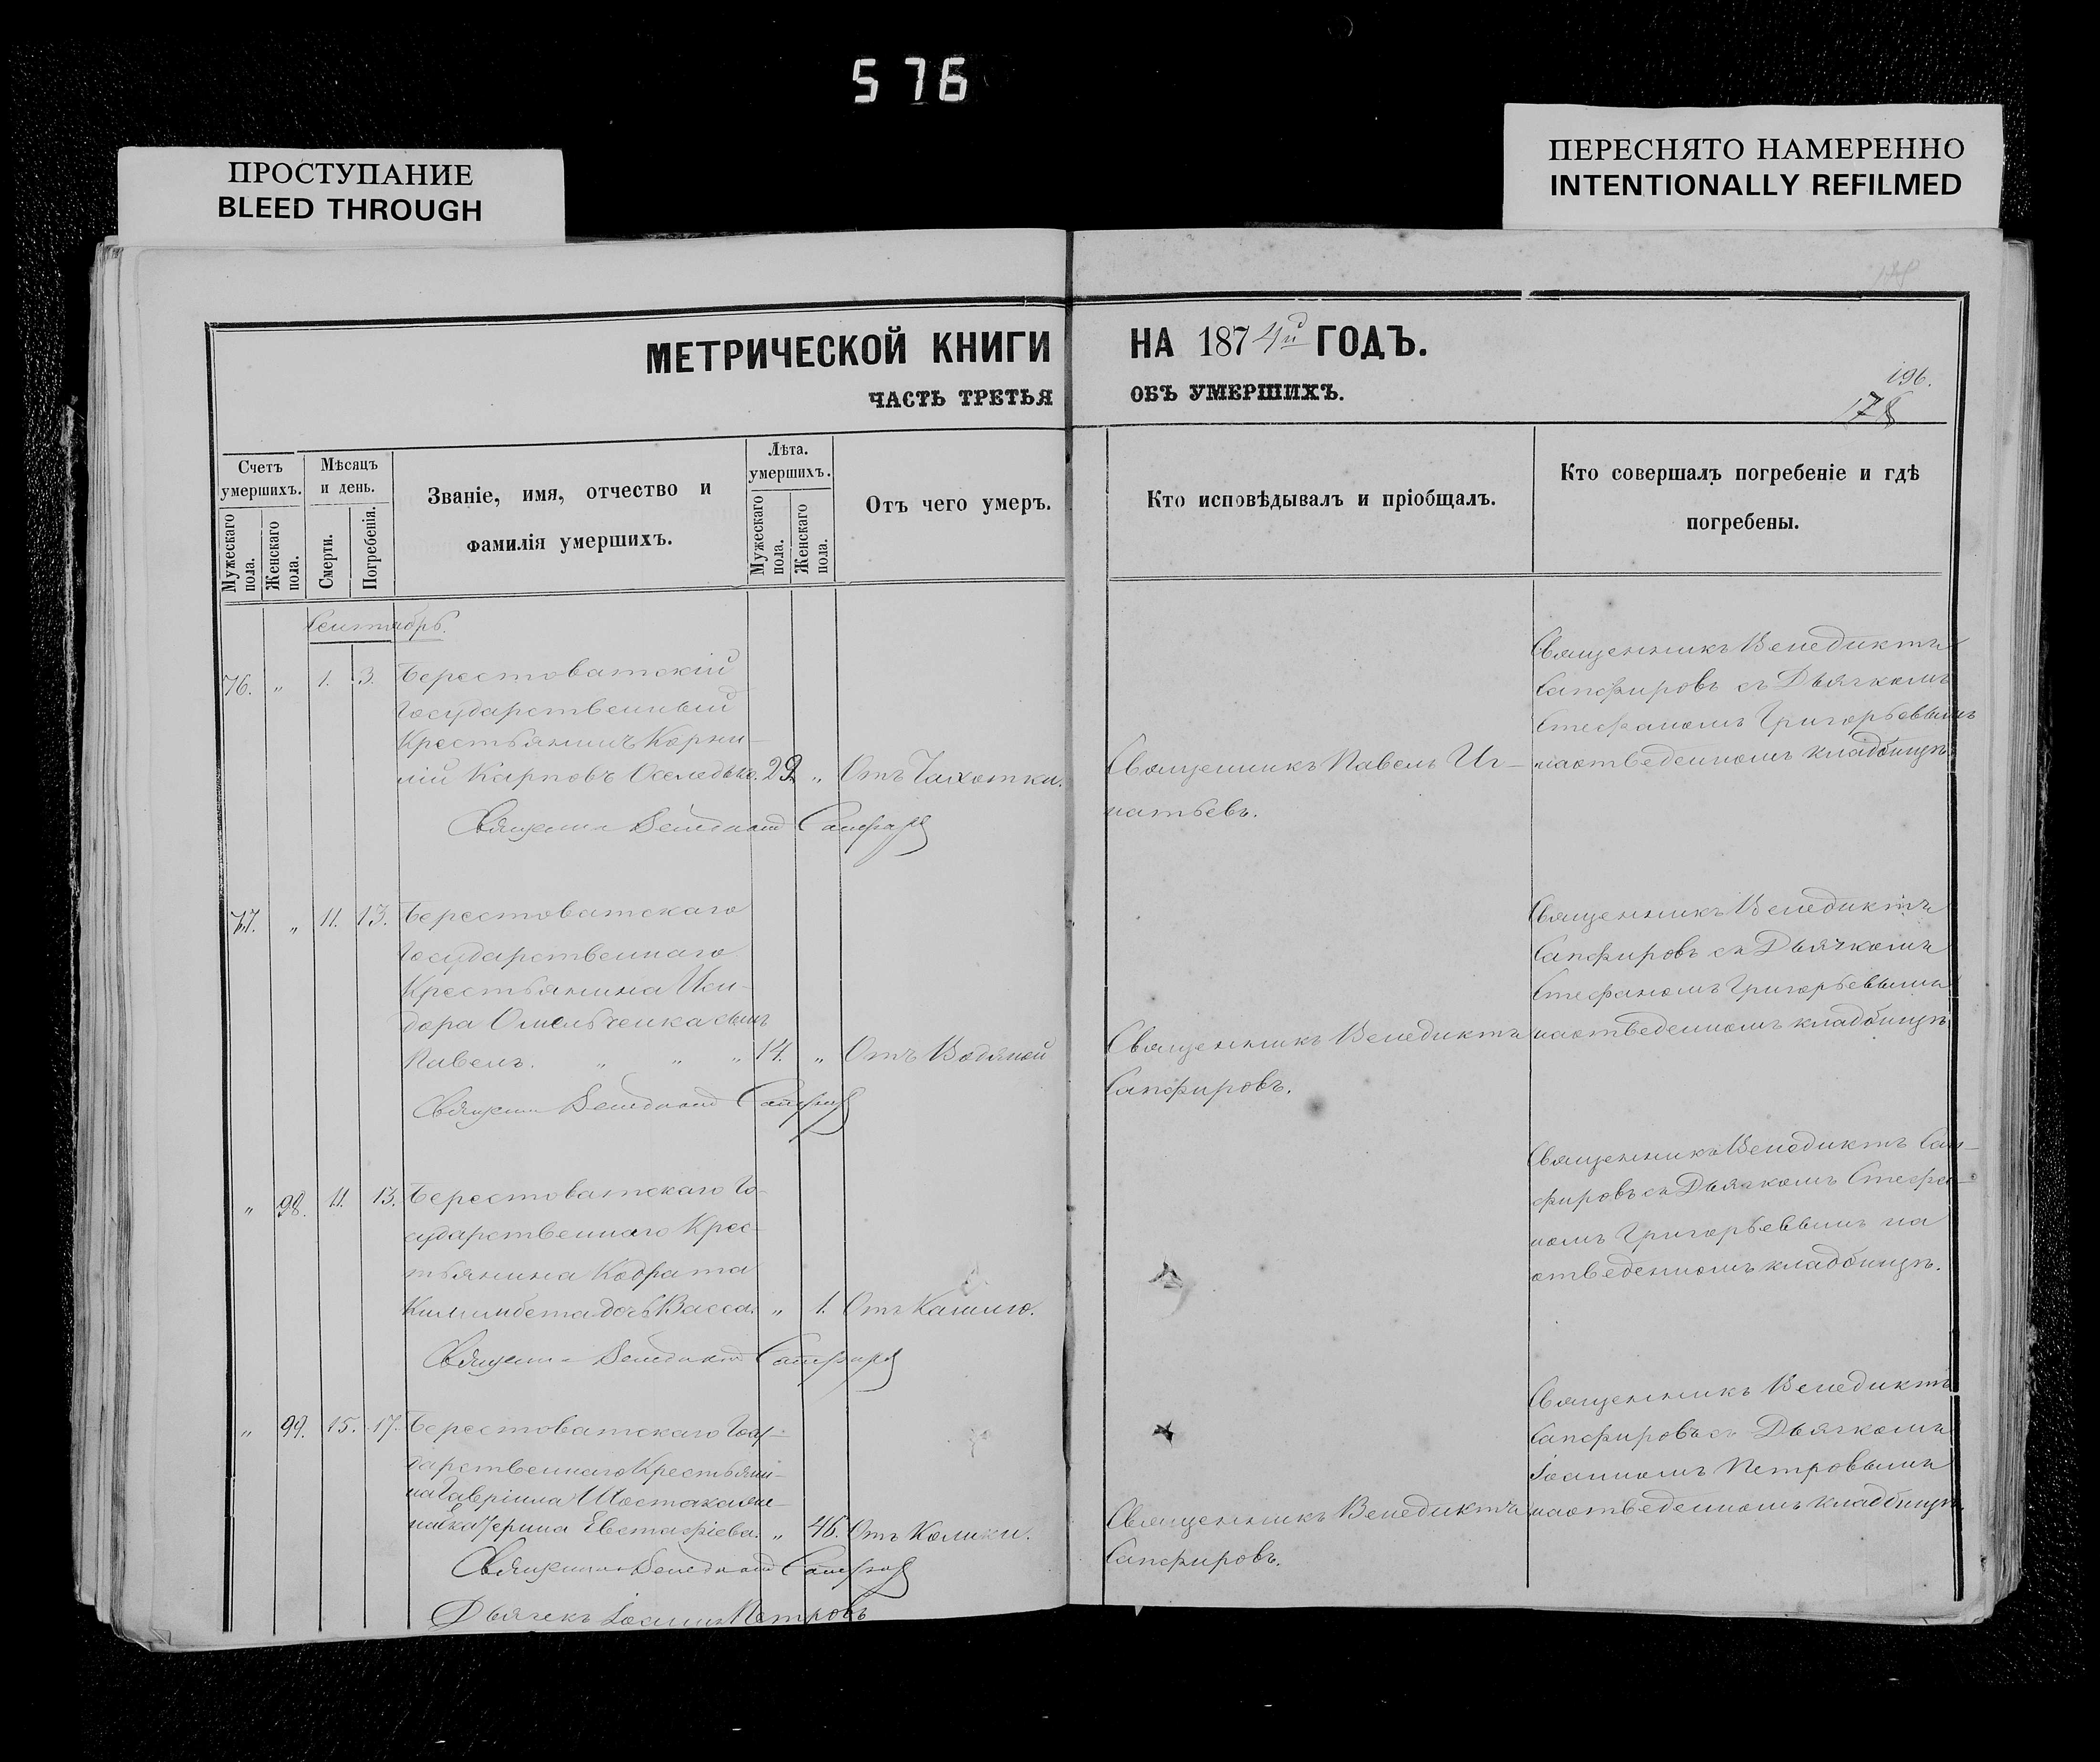 576
ПРОСТУПАНИЕ
BLEED THROUGH
ПЕРЕСНЯТО НАМЕРЕННО
INTENTIONALLY REFILMED
МЕТРИЧЕСКОЙ КНИГИ НА 1874й ГОДЪ.
ЧАСТЬ ТРЕТЬЯ ОБЪ УМЕРШИХЪ.
196.
178
Счетъ умершихъ.
Мужескаго пола.
Женскаго пола.
Мѣсяцъ и день.
Смерти.
Погребенія.
Званіе, имя, отчество и
фамилія умершихъ.
Лѣта.
умершихъ.
Мужескаго пола.
Женскаго пола.
Отъ чего умеръ.
Кто исповѣдывалъ и пріобщалъ.
Кто совершалъ погребеніе и гдѣ
погребены.
Сентябрь.
76. " 1. 3. Берестоватскій
Государственный
Крестьянинъ Корни-
лій Карповъ Оселедько. 29. " Отъ Чахотки.
Священникъ Павелъ Иг-
натьевъ.
Священникъ Венедиктъ
Сапфировъ съ Дьячкомъ
Стефаномъ Григорьевымъ
наотведенномъ кладбищѣ.
Священникъ Венедиктъ Сапфировъ
77. " 11. 13. Берестоватскаго
Государственнаго
Крестьянина Иси-
дора Омельченка сынъ
Павелъ. " " 14. " Отъ Водяной
Священникъ Венедиктъ
Сапфировъ.
Священникъ Венедиктъ
Сапфировъ съ Дьячкомъ
Стефаномъ Григорьевымъ
наотведенномъ кладбищѣ
Священникъ Венедиктъ Сапфировъ
" 98. 11. 13. Берестоватскаго Го-
сударственнаго Крес-
тьянина Кодрата
Килимбета дочь Васса. " 1. Отъ Кашлю.
Священникъ Венедиктъ Сап-
фировъ съ Дьячкомъ Стефа-
номъ Григорьевымъ на
отведенномъ кладбищѣ.
Священникъ Венедиктъ Сапфировъ
" 99. 15. 17. Берестоватскаго Госу-
дарственнаго Крестьяни-
на Гавріила Шостака же-
на Екатерина Евстафіева. " 46. Отъ Колики.
Священникъ Венедиктъ
Сапфировъ.
Священникъ Венедиктъ
Сапфировъ съ Дьячкомъ
Іоанномъ Петровымъ
наотведенномъ кладбищѣ.
Священникъ Венедиктъ Сапфировъ
Дьячекъ Іоаннъ Петровъ